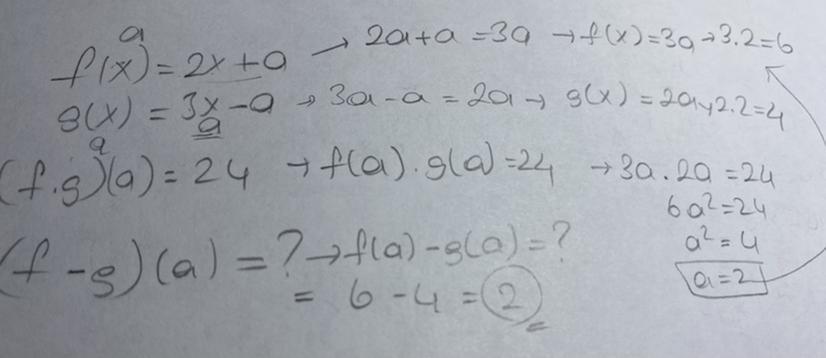 a
f(x) = 2x + a → 2a + a = 3a → f(x) = 3a → 3.2 = 6
g(x) = 3x - a → 3a - a = 2a → g(x) = 2a → 2.2 = 4
a
a
(f.g)(a) = 24 → f(a).g(a) = 24 → 3a.2a = 24
6a² = 24
a² = 4
a = 2
(f - g)(a) = ? → f(a) - g(a) = ?
= 6 - 4 = 2